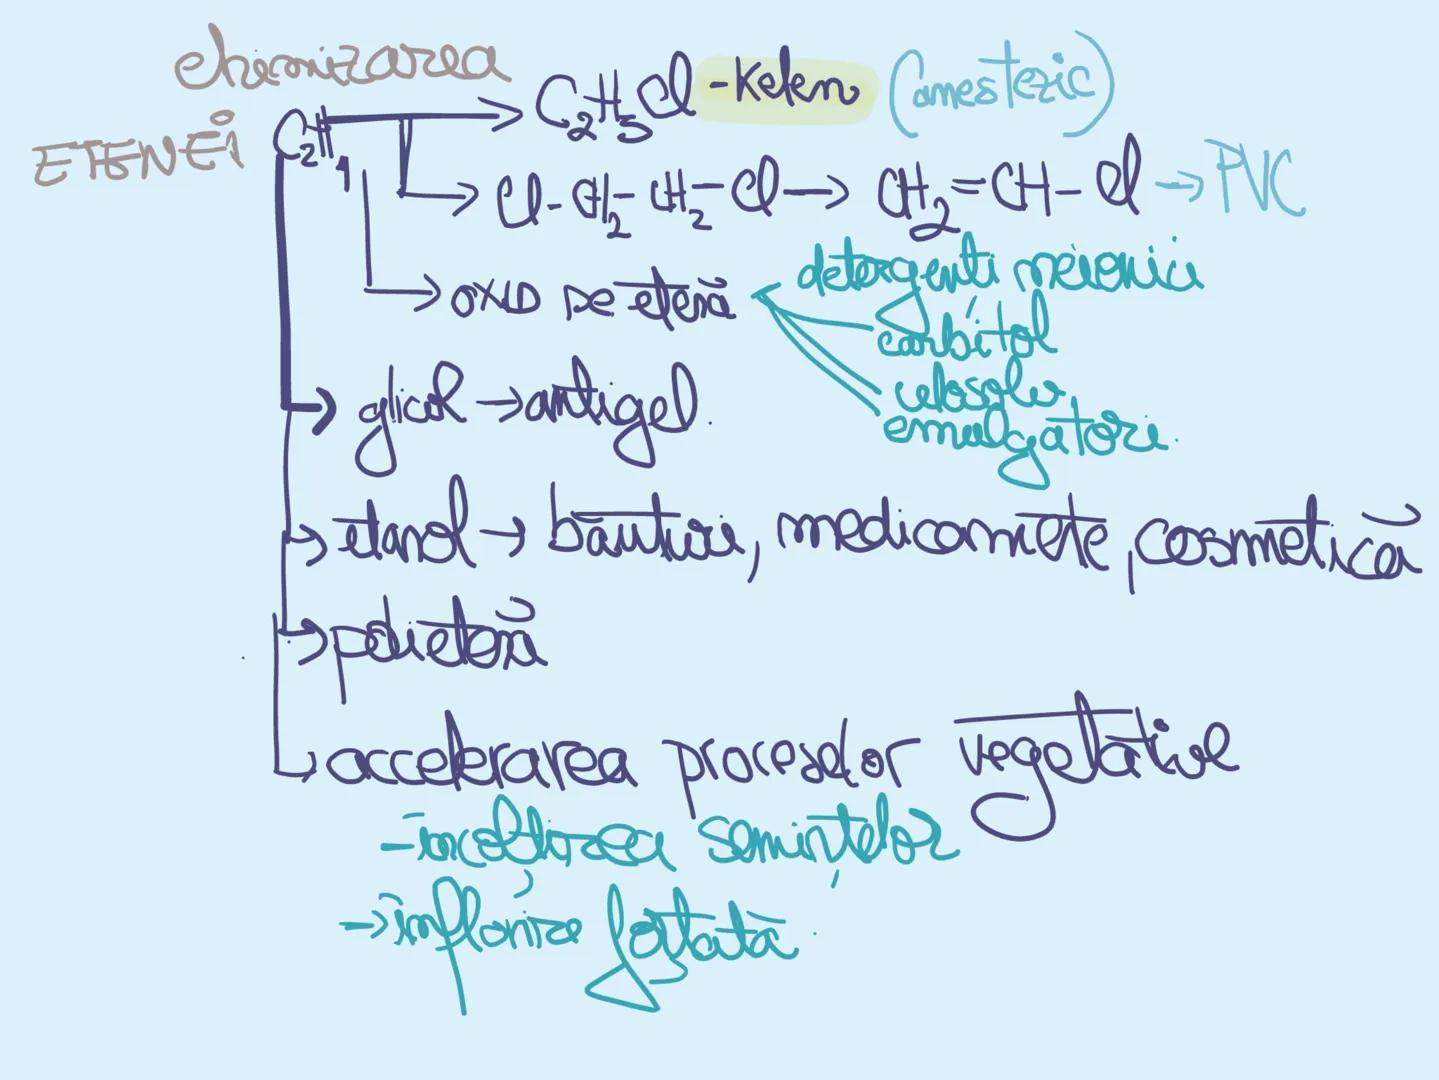 chimizarea
ETENEI
C₂H₄ → C₂H₅Cl - Kelen (anestezic)
→ Cl-CH₂-CH₂-Cl → CH₂=CH-Cl → PVC
→ OXID DE etenă
detergenți neionici
carbitol
celosolv
emulgatori
→ glicol → antigel
→ etanol → băuturi, medicamete, cosmetică
→ polietenă
→ accelerarea proceselor vegetative
- încolțirea semințelor
→ înflorire forțată